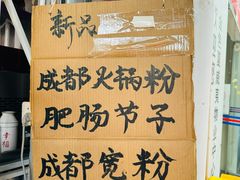 新品
成都火锅粉
肥肠节子
成都宽粉
幸福